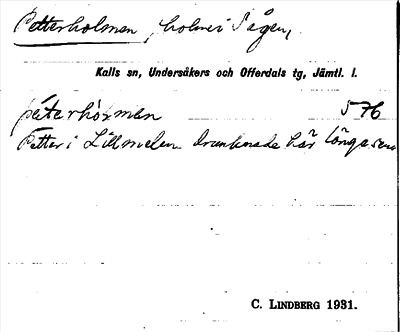 Petterholmen, holme i Sågen,
Kalls sn, Undersåkers och Offerdals tg, Jämtl. l.
pèterhòrmen 576
Petter i Lillmelen drunknade här länge sen
C. LINDBERG 1931.